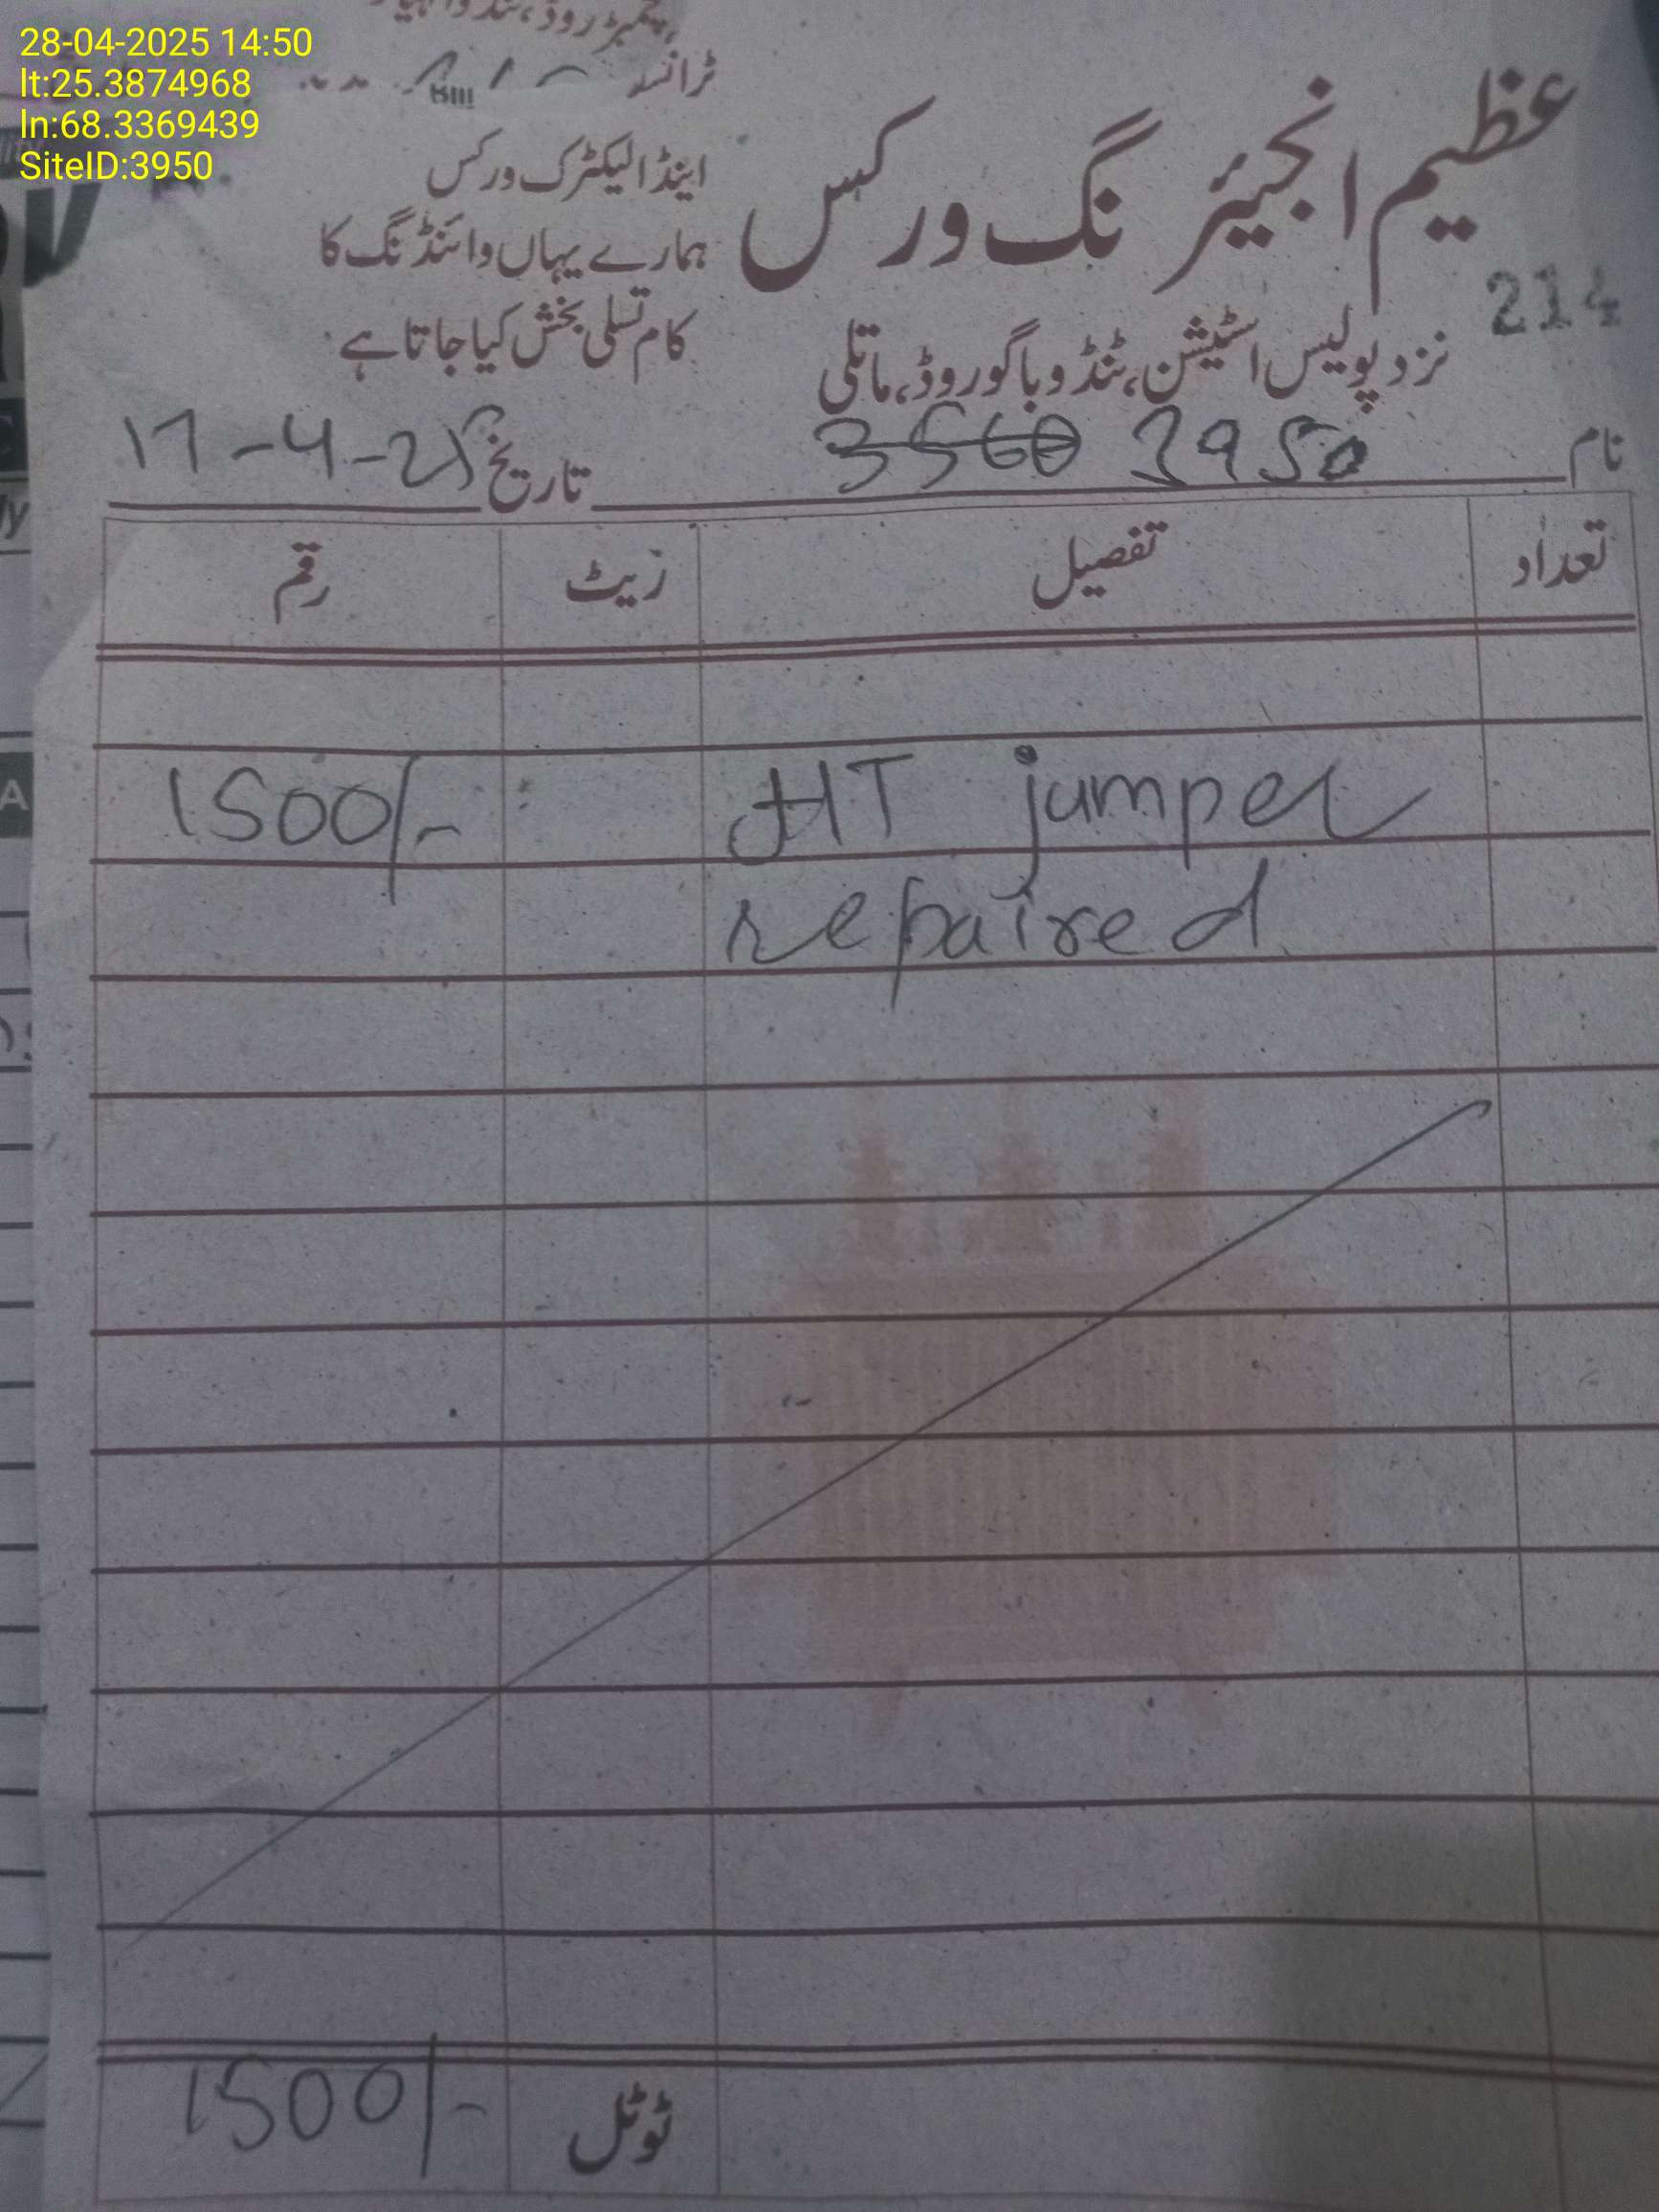 28-04-2025 14:50
lt:25.3874968
ln:68.3369439
SiteID:3950
عظیم انجیئرنگ ورکس
اینڈ الیکٹرک ورکس
ہمارے یہاں وائنڈنگ کا
کام تسلی بخش کیا جاتا ہے
214
نزد پولیس اسٹیشن، ٹنڈو باگو روڈ، ماتلی
نام 3560 3950 تاریخ 17-4-25
تعداد تفصیل ریٹ رقم
HT jumper 1500/-
repaired
ٹوٹل 1500/-